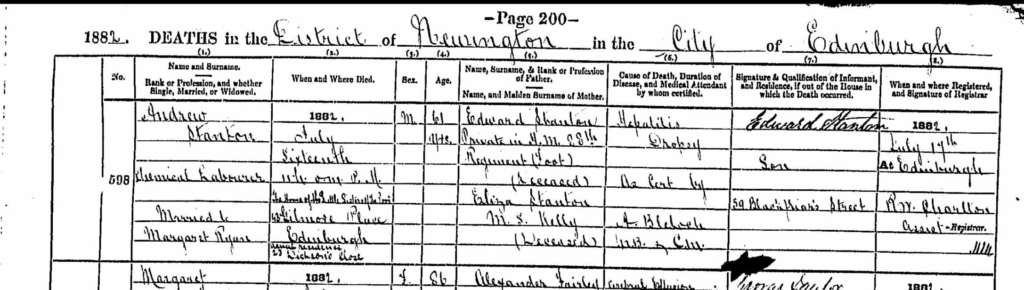 —Page 200—
1882. DEATHS in the District of Newington in the City of Edinburgh
(1.) (2.) (3.) (4.) (5.) (6.) (7.) (8.)
No. Name and Surname. Rank or Profession, and whether Single, Married, or Widowed.
When and Where Died.
Sex.
Age.
Name, Surname, & Rank or Profession of Father. Name, and Maiden Surname of Mother.
Cause of Death, Duration of Disease, and Medical Attendant by whom certified.
Signature & Qualification of Informant, and Residence, if out of the House in which the Death occurred.
When and where Registered, and Signature of Registrar
598
Andrew
Stanton
Chemical Labourer
Married to
Margaret Ryan
1882,
July
Sixteenth
11h 0m P.M.
The Home of the Little Sisters of the Poor
43 Gilmore Place
Edinburgh
usual residence
M.
61
Yrs.
Edward Stanton
Private in H.M. 28th
Regiment (Foot)
(Deceased)
Eliza Stanton
M.S. Kelly
(Deceased)
Hepatitis
Dropsy
As Cert by
Edward Stanton
Son
59 Blackfriars Street
1882,
July 17th
At Edinburgh
R.W. Charlton
Assist-Registrar.
Margaret
1882,
F.
86
Alexander Fairley
1882,